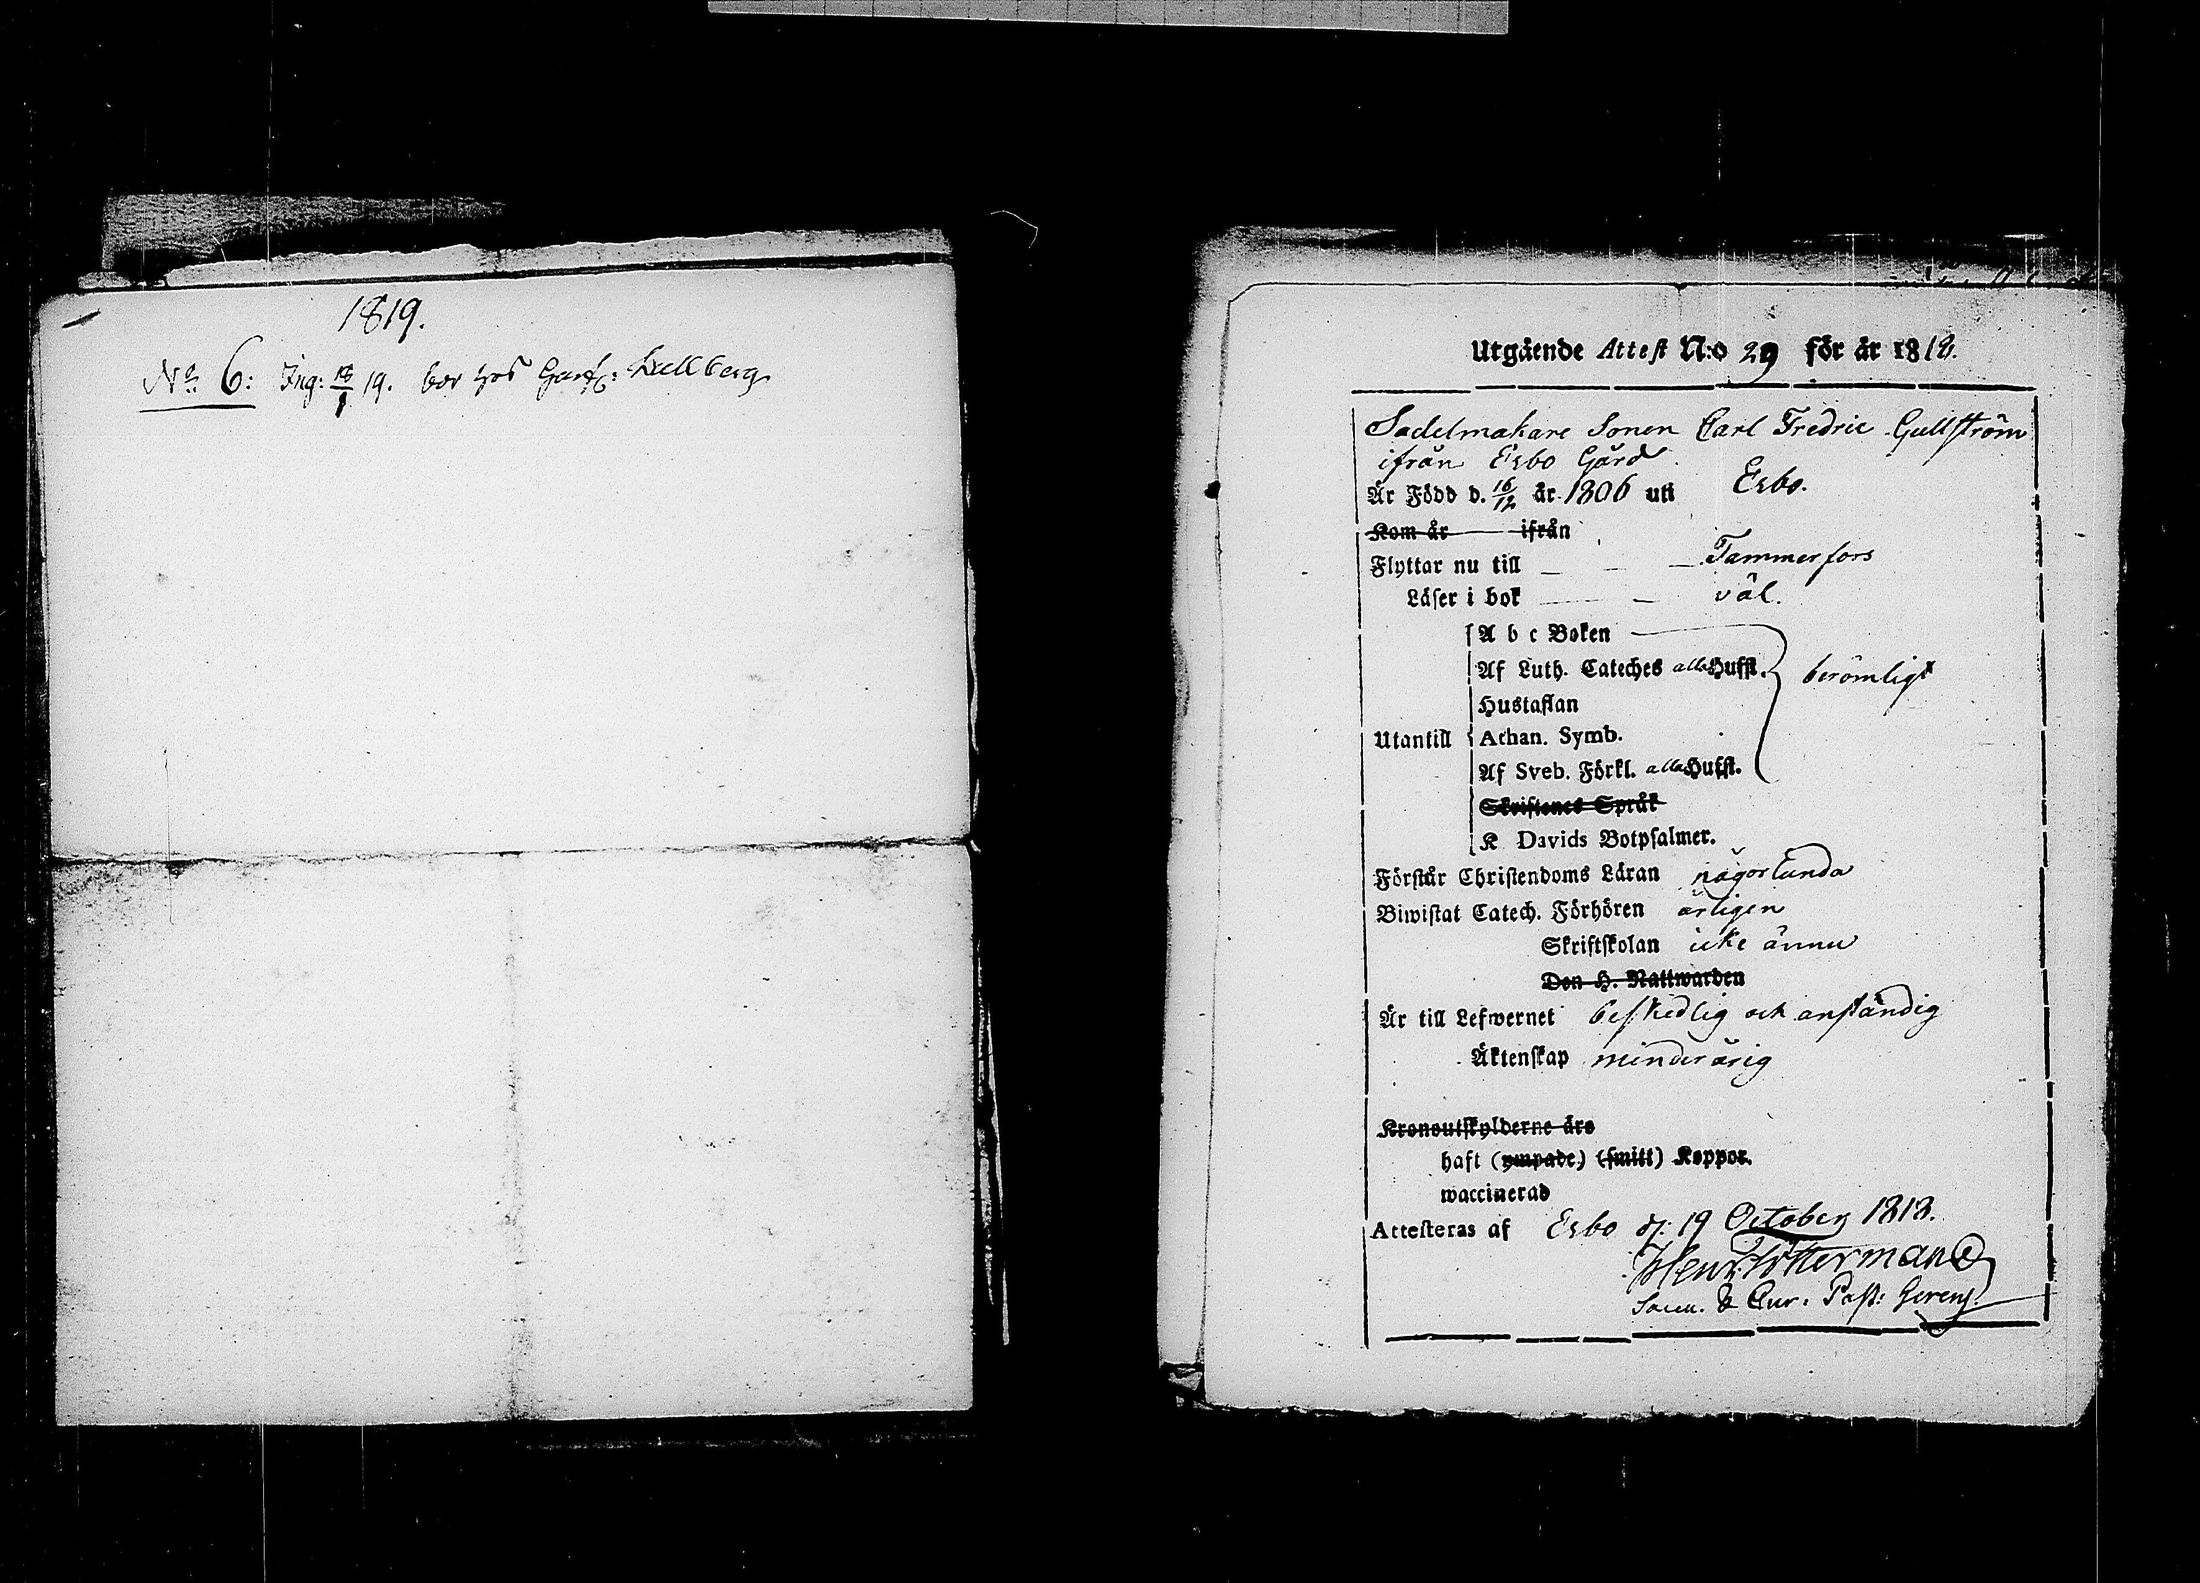 1819.
No 6: Ing: 18/1 19. bor hos Garf: Kellberg
Utgående Attest N:o 29 för år 1818.
Sadelmakare Sonen Carl Fredric Gullström
ifrån Esbo Gård
Är Född d. 16/12 år 1806 uti Esbo.
Kom år ifrån
Flyttar nu till Tammerfors
Läser i bok väl.
A b c Boken
Af Luth. Cateches alla Hufst. berömligt
Hustaflan
Utantill Athan. Symb.
Af Sveb. Förkl. alla Hufst.
Skriftenes Språk
K Davids Botpsalmer.
Förstår Christendoms Läran någorlunda
Biwistat Catech. Förhören årligen
Skriftskolan icke ännu
Den H. Nattwarden
Är till Lefwernet beskedlig och anständig
Äktenskap minderårig
Kronoutskylderne äro
haft (ympade) (smitt) Koppor.
waccinerad
Attesteras af Esbo d: 19 October 1818.
Sacell. & Cur. Past: Gerens.